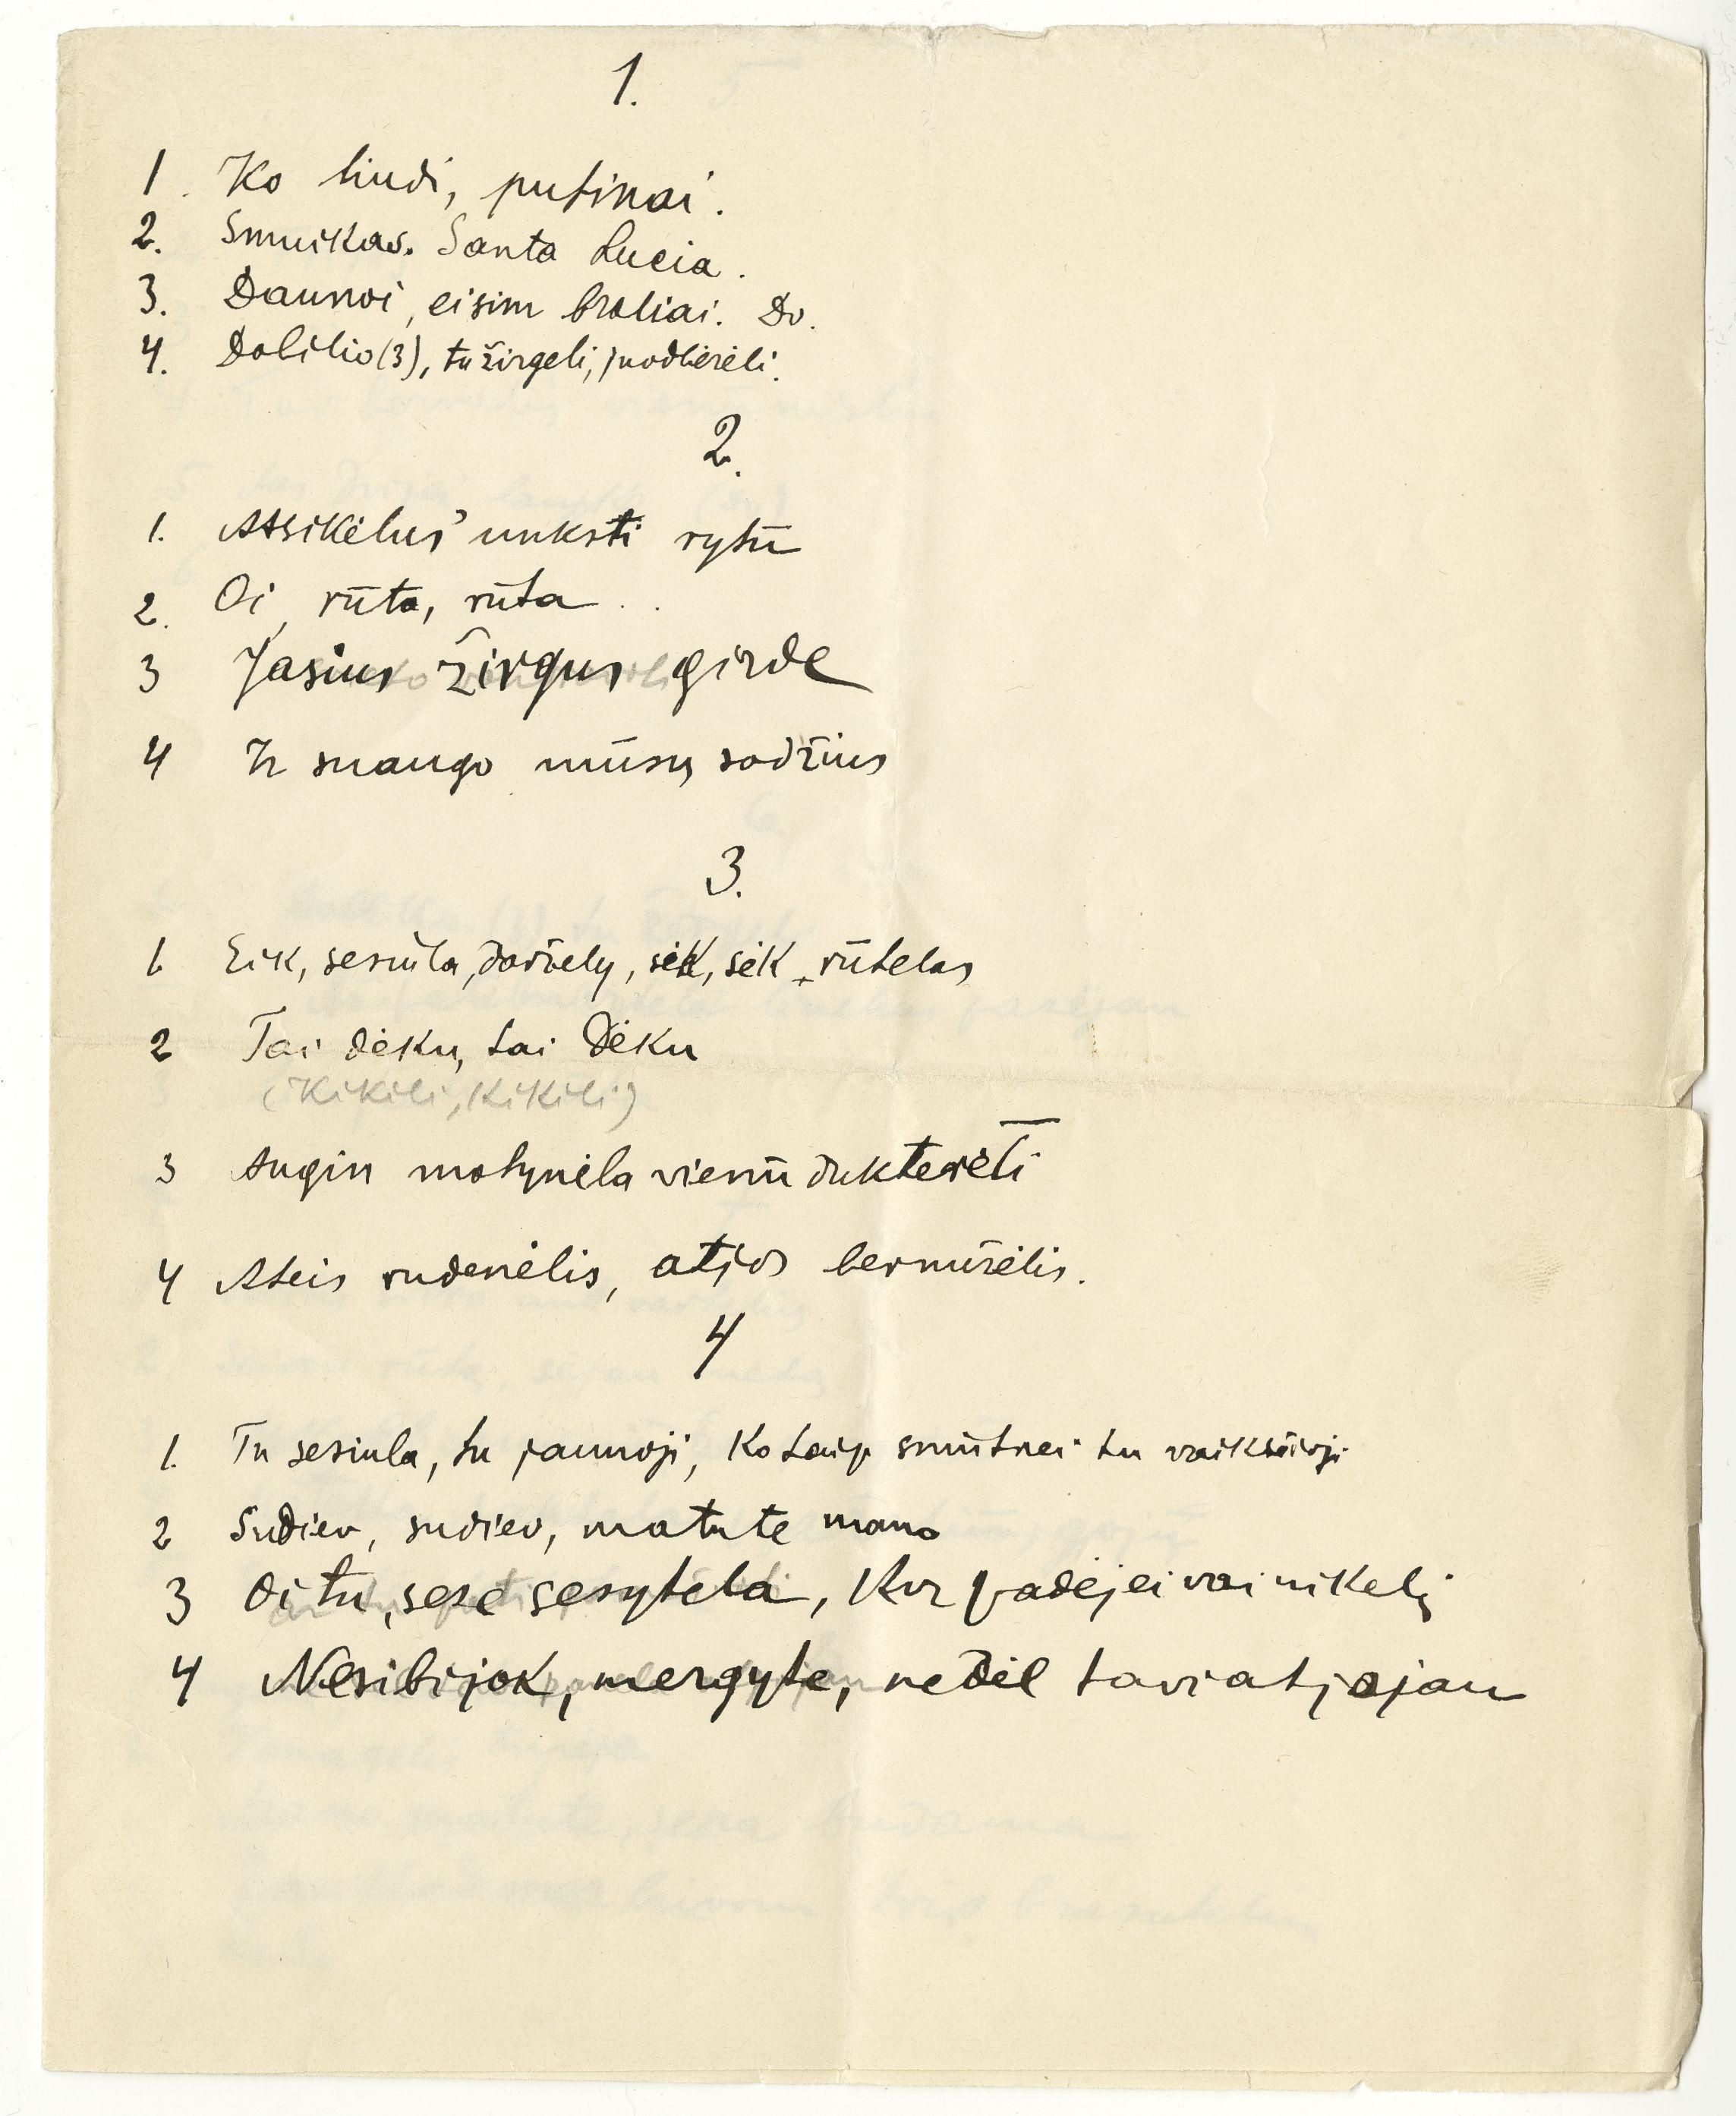 1.
1. Ko liudi, putinai.
2. Smuikas. Santa Lucia.
3. Daunoi, eisim broliai. Do.
4. Dolilio (3), tu žirgeli, juodbėrėli.
2.
1. Atsikėlus' unksti rytū
2. Oi, rūta, rūta ..
3 Jasius žirgus girdė
4 Ir snaugo mūsų sodžius
3.
1. Eik, sesiula, darželų, sėk, sėk rūtelas
2 Tai dėku, tai dėku
(Kikili, Kikili)
3 Augin motynėla vienū dukterėlī
4 Ateis rudenėlis, atjos bernužėlis.
4
1. Tu sesiula, tu jaunoji, ko taip smūtnei tu vaikščioji
2 Sudiev, sudiev, matute mano
3 Oi tu, sese sesytela, kur padėjei vainikelį
4 Nesibijok, mergyte, nedėl tavi atjojau